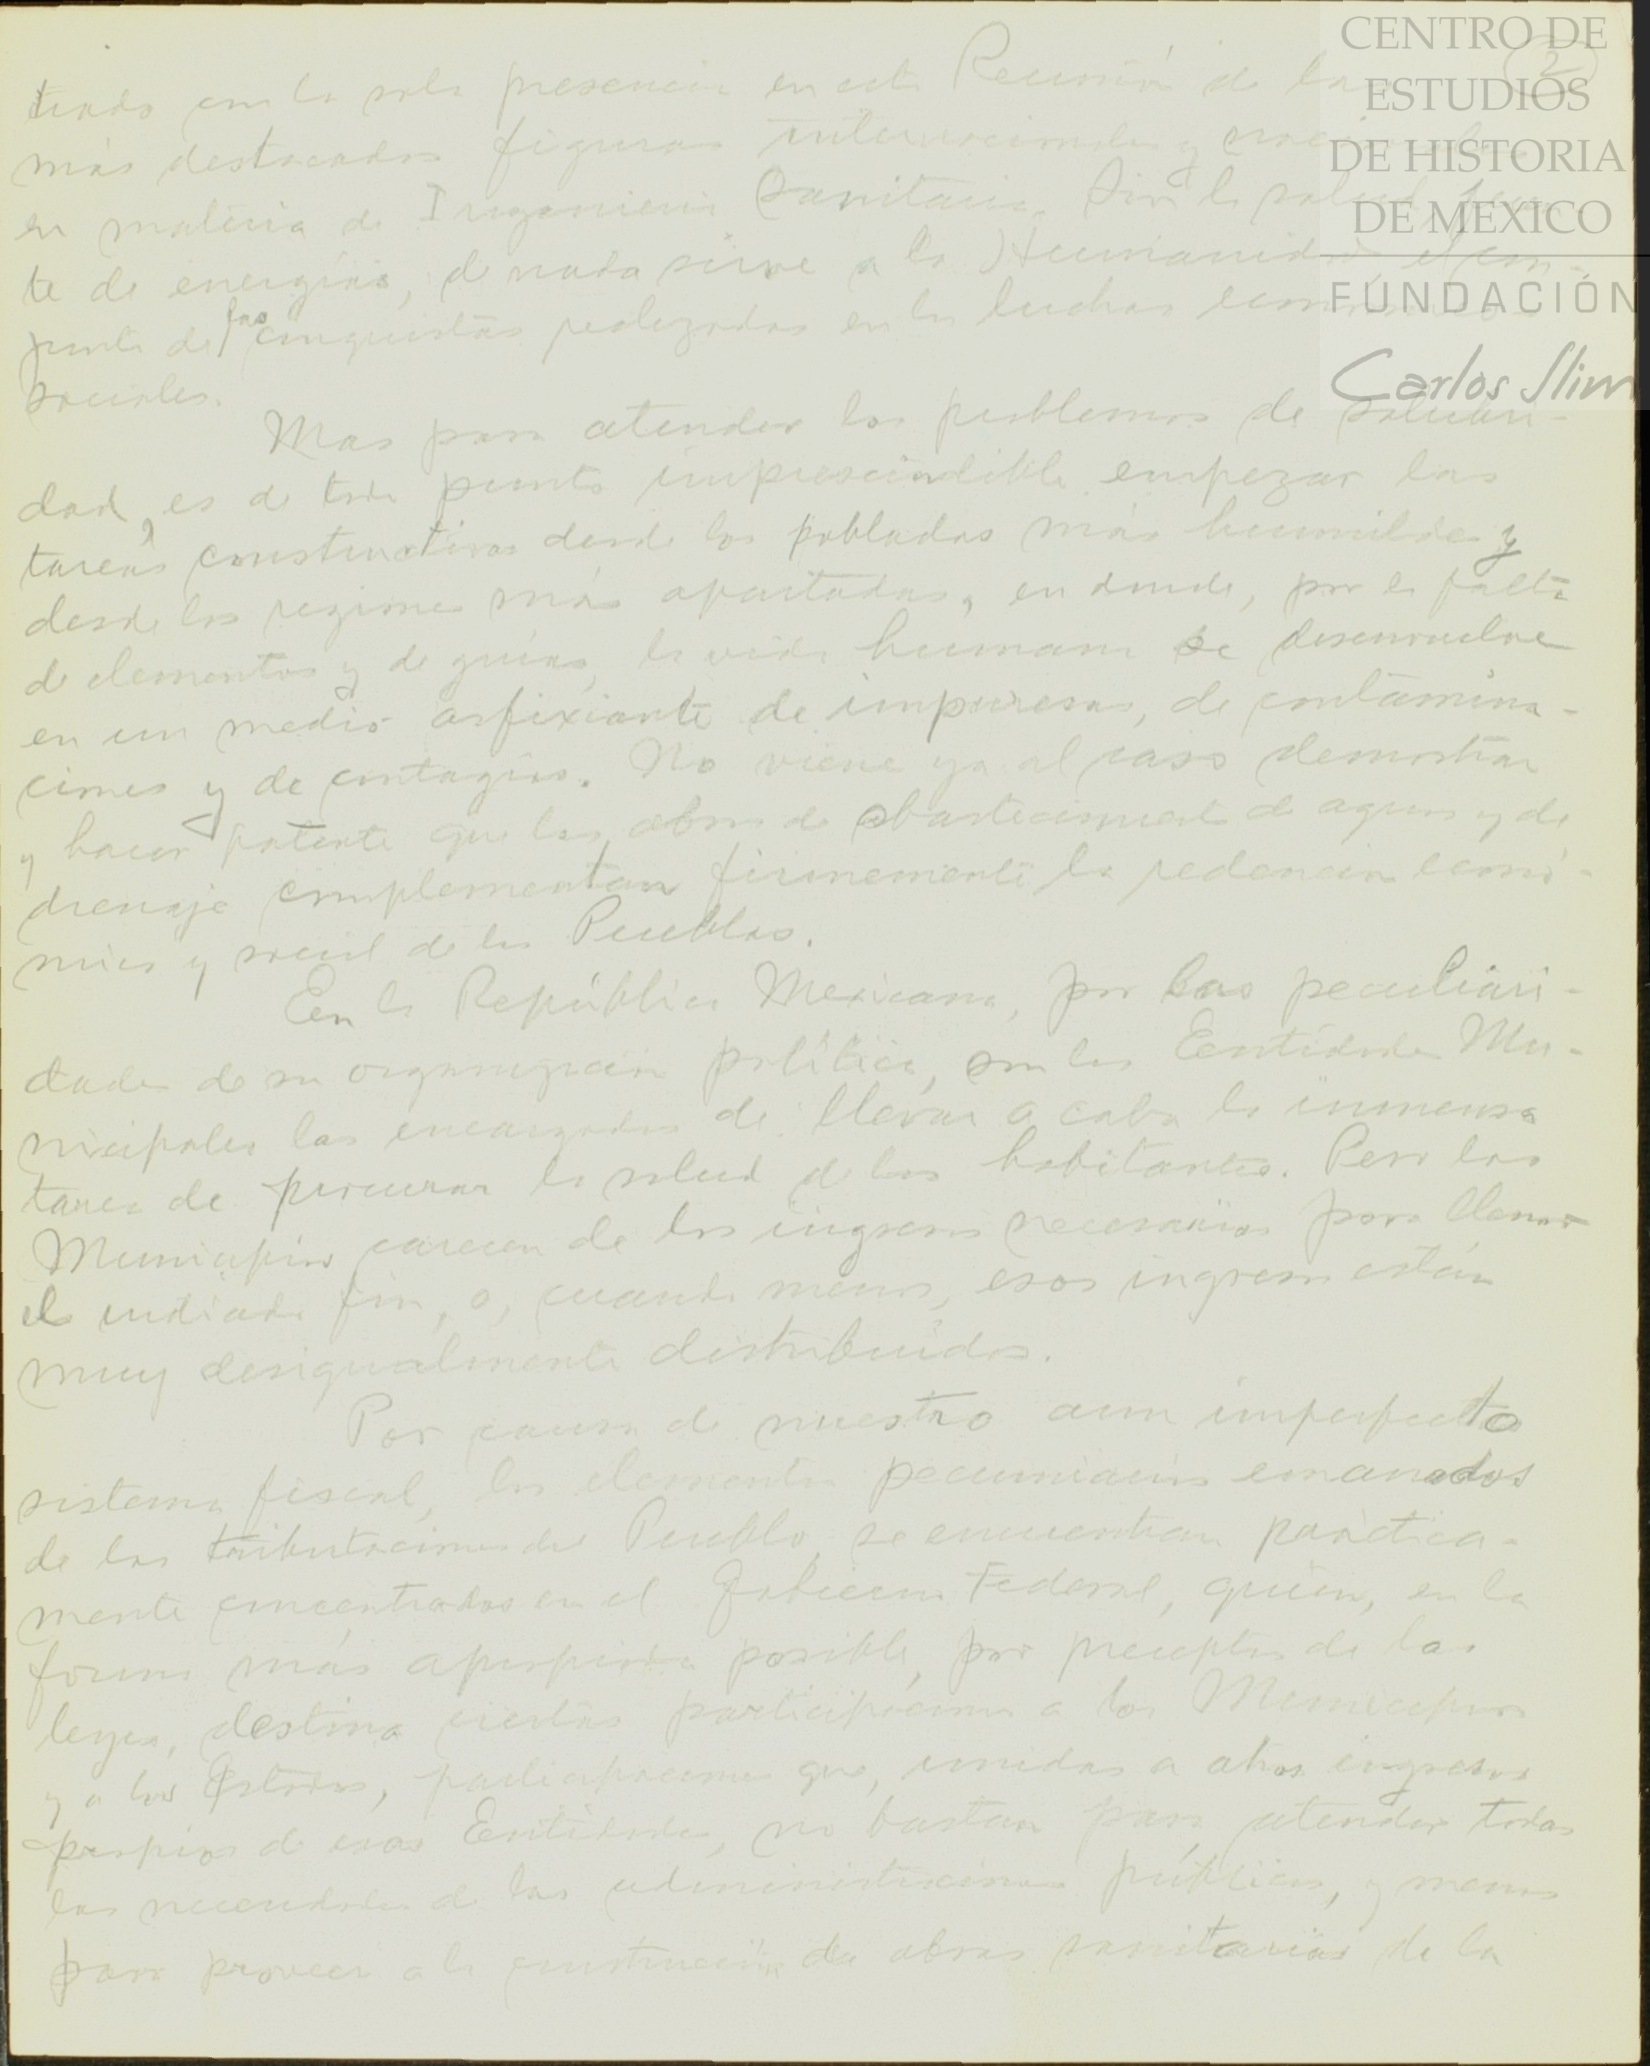 CENTRO DE
ESTUDIOS
DE HISTORIA
DE MEXICO
FUNDACIÓN
Carlos Slim
2
trado con la sola presencia en esta Reunión de las
más destacadas figuras internacionales y nacionales
en materia de Ingenieria Sanitaria. Sin la salud, fuen-
te de energías, de nada sirve a la Humanidad el con-
junto de las conquistas realizadas en las luchas económico
sociales.
Mas para atender los problemas de salubri-
dad, es de todo punto imprescindible empezar las
tareas constructivas desde los poblados más humildes y
desde las regiones más apartadas, en donde, por la falta
de elementos y de guías, la vida humana se desenvuelve
en un medio asfixiante de impurezas, de contamina-
ciones y de contagios. No viene ya al caso demostrar
y hacer patente que las obras de abastecimiento de aguas y de
drenaje complementan firmemente la redención econó-
mica y social de los Pueblos.
En la República Mexicana, por las peculiari-
dades de su organización política, son las Entidades Mu-
nicipales las encargadas de llevar a cabo la inmensa
tarea de procurar la salud de los habitantes. Pero los
Municipios carecen de los ingresos necesarios para llenar
el indicado fin, o, cuando menos, esos ingresos están
muy desigualmente distribuídos.
Por causa de nuestro aun imperfecto
sistema fiscal, los elementos pecuniarios emanados
de las tributaciones del Pueblo se encuentran práctica-
mente concentrados en el Gobierno Federal, quien, en la
forma más apropiada posible, por preceptos de las
leyes, destina ciertas participaciones a los Municipios
y a los Estados, participaciones que, unidas a otros ingresos
propios de esas Entidades, no bastan para atender todas
las necesidades de las administraciones públicas, y menos
para proveer a la construcción de obras sanitarias de la